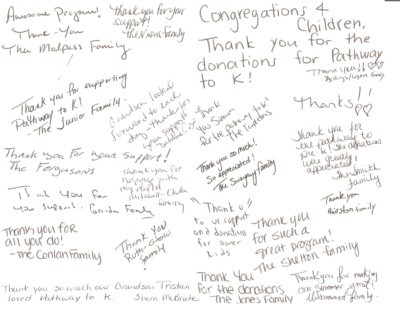 Awesome Program!
Thank-You
The Malpass Family
Thank you for your
support!
The Nunn Family
Congregations 4
Children,
Thank you for the
donations for Pathway
to K!
Thank you!!
family
Thank you for supporting
Pathway to K!
- The Junior Family -
Grandson looked
forward to each
day - thank you
for support
Thank
you so much
for the pathway to K!
Thanks!
Thank you for
the pathway to
K. The donations
was greatly
appreciated!
The Smith
family
Thank you For your support!
The Fergusons
Thank you so much!
So appreciated!
The family
Thank you for
helping
my child
Mitchell
family
Thank You for
your support.
Family
Thank u
to ur support
and donating
for our
kids
Thank you
Hairston family
Thank you for
all you do!
- The Conlan Family
Thank you
family
Thank you
for such a
great program!
The Shelton family
Thank You
for the donations
The Jones Family
Thank you for making
our summer great!
family.
Thank you so much our Grandson Tristan
loved Pathway to K. Sherri McBride